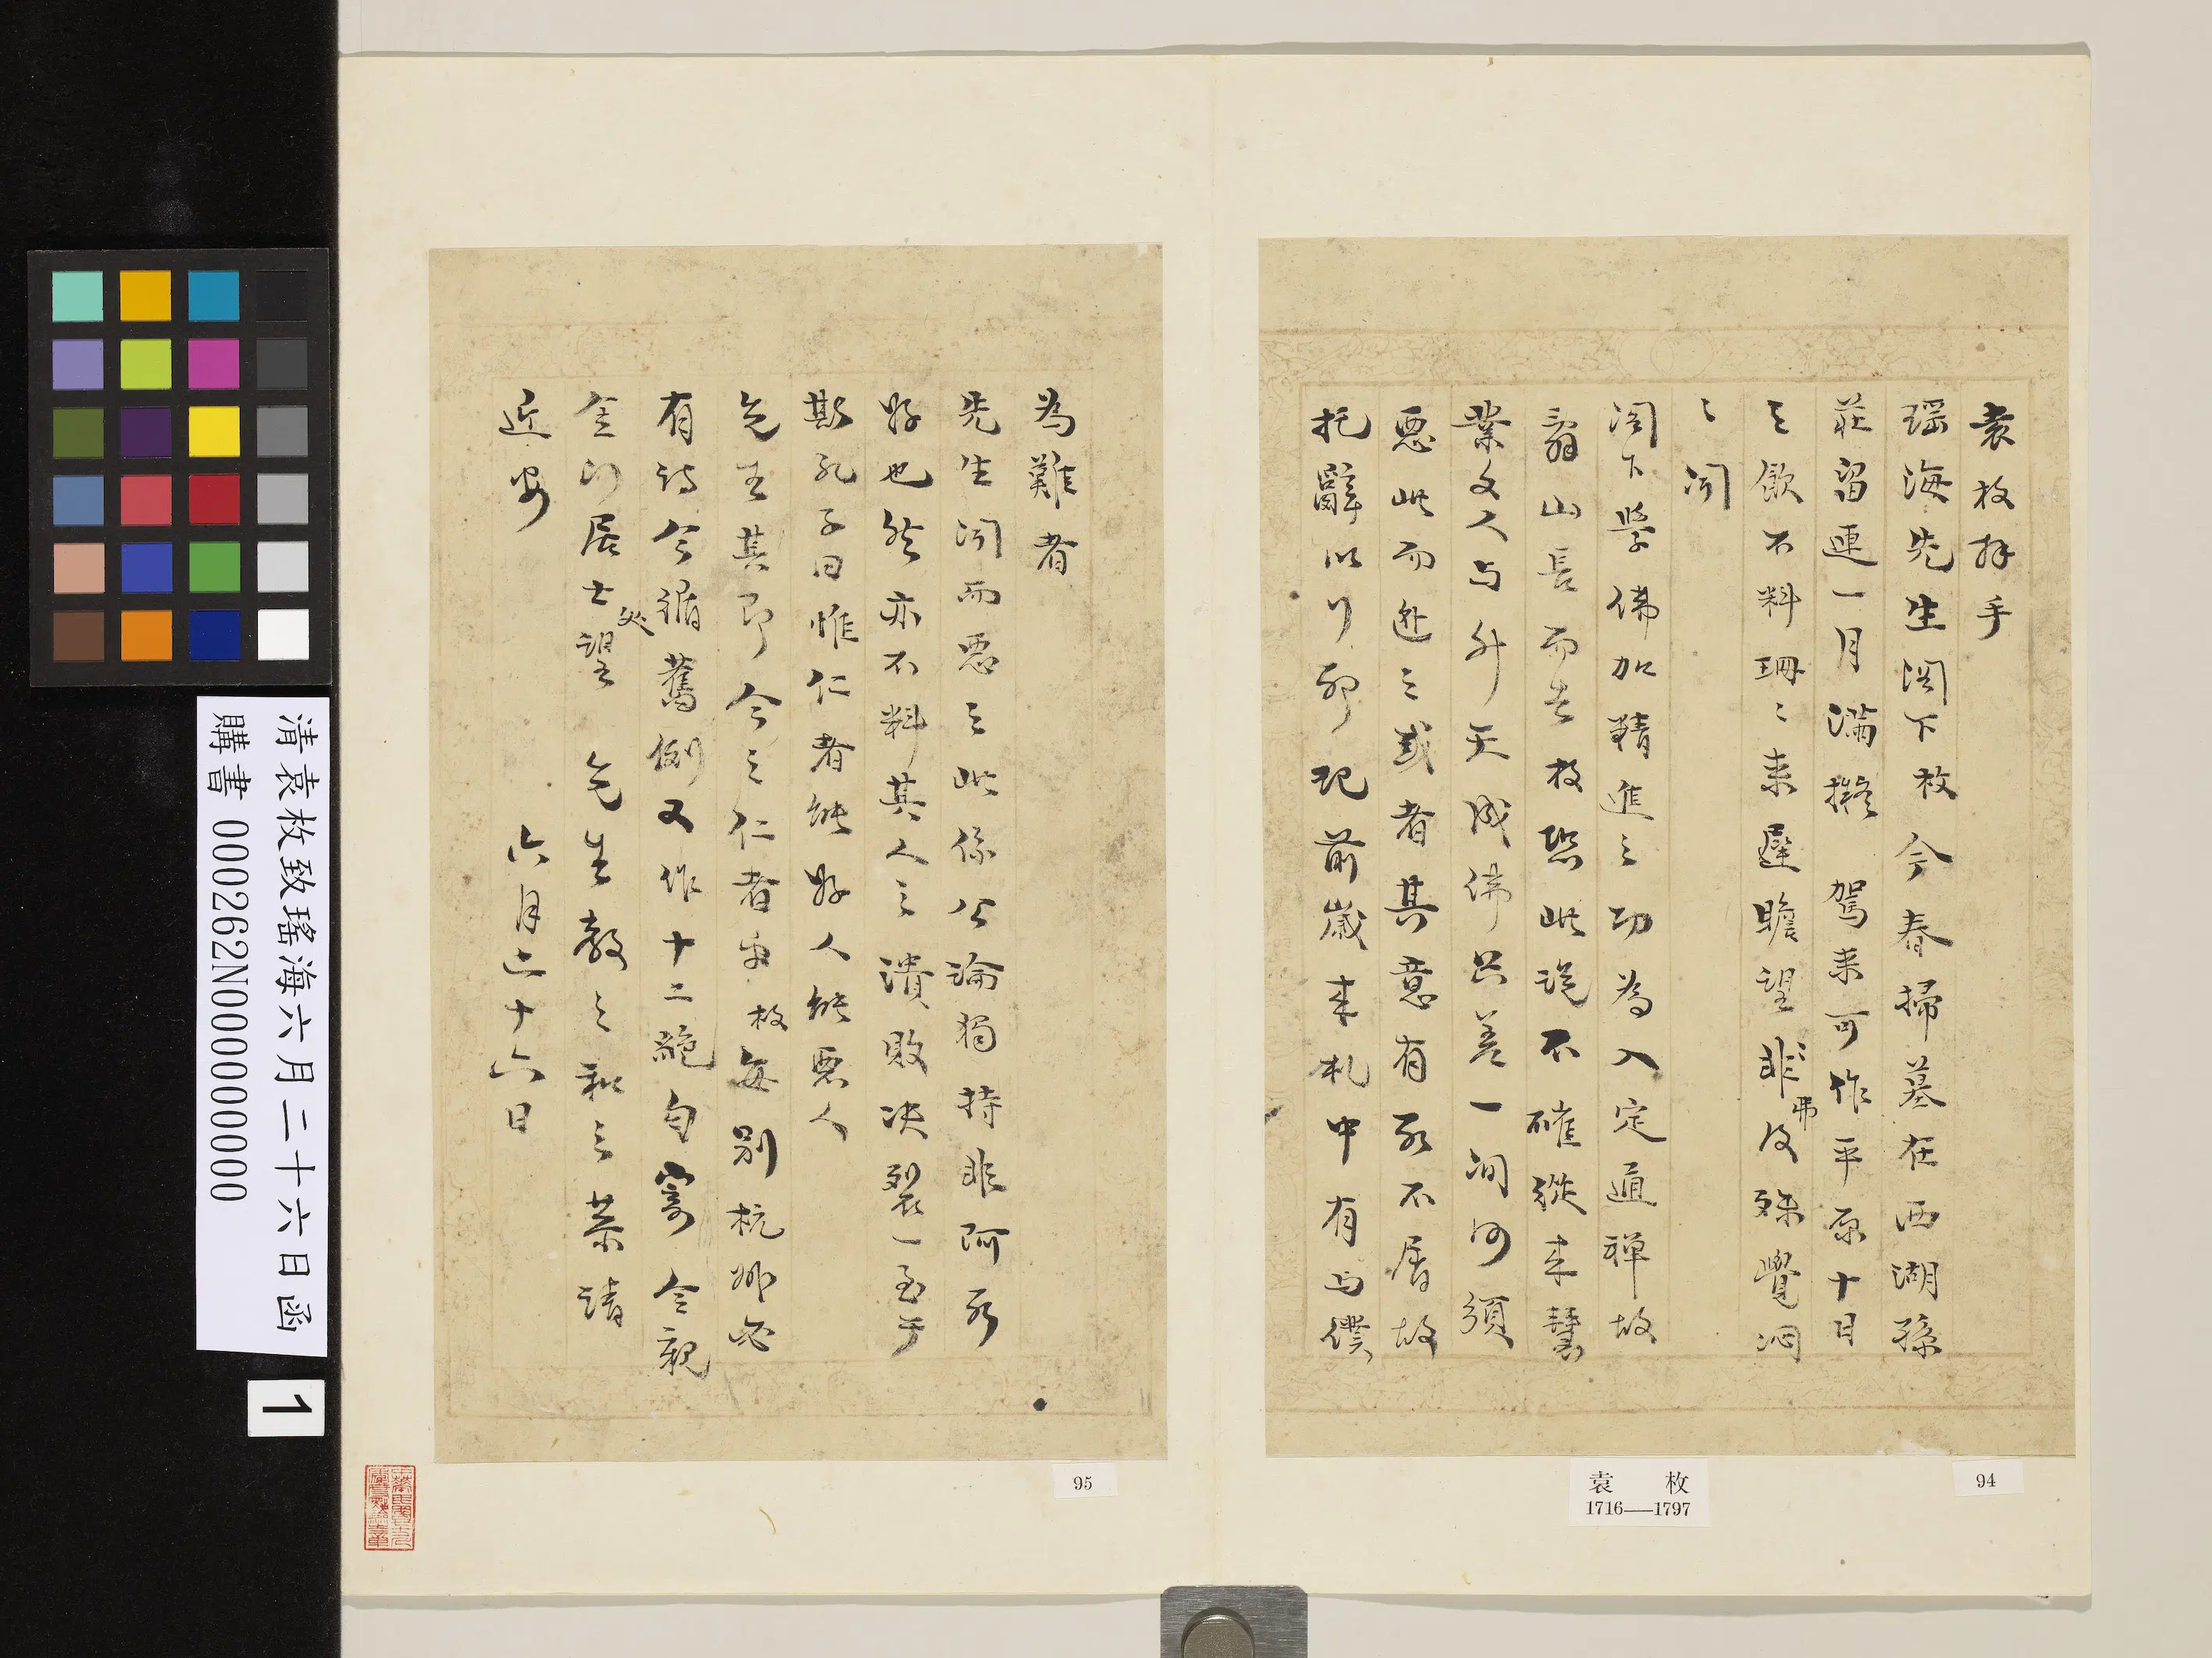 袁枚拜手
瑶海先生閣下枚今春掃墓在西湖孫
莊留連一月滿擬 駕来可作平原十日
之飲不料珊〻来遲瞻望非〻弗及殊覺悶
〻聞
閣下學佛加精進之功為入定逃禪故
辭山長而去枚恐此說不確從来慧
業文人与升天成佛只差一间何須
惡此而逃之或者其意有所不屑故
托辭以行耶記前歲来札中有与僕
為難者
先生聞而惡之此係公論獨持非阿所
好也然亦不料其人之潰敗决裂一至于
斯孔子曰惟仁者能好人能惡人
先生其即今之仁者乎枚每别杭州必
有詩今循舊例又作十二絕句寄令親
金门居士处望 先生教之和之恭請
近安
六月二十六日
94
袁 枚
1716—1797
95
清袁枚致瑤海六月二十六日函
購書 000262N000000000
1